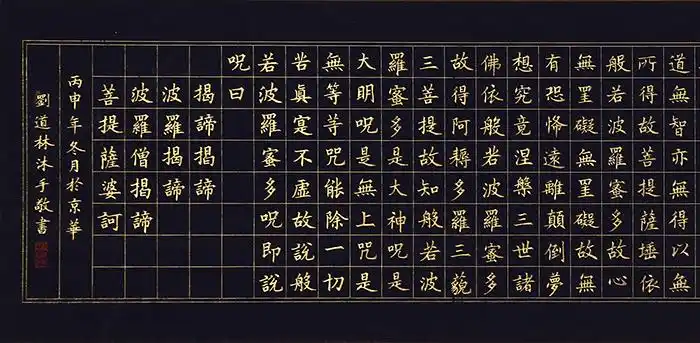 道無智亦無得以無
所得故菩提薩埵依
般若波羅蜜多故心
無罣礙無罣礙故無
有恐怖遠離顛倒夢
想究竟涅槃三世諸
佛依般若波羅蜜多
故得阿耨多羅三藐
三菩提故知般若波
羅蜜多是大神呪是
大明呪是無上咒是
無等等咒能除一切
苦眞寔不虛故說般
若波羅蜜多呪即說
呪曰
揭諦揭諦
波羅揭諦
波羅僧揭諦
菩提薩婆訶
丙申年冬月於京華
劉道林沐手敬書